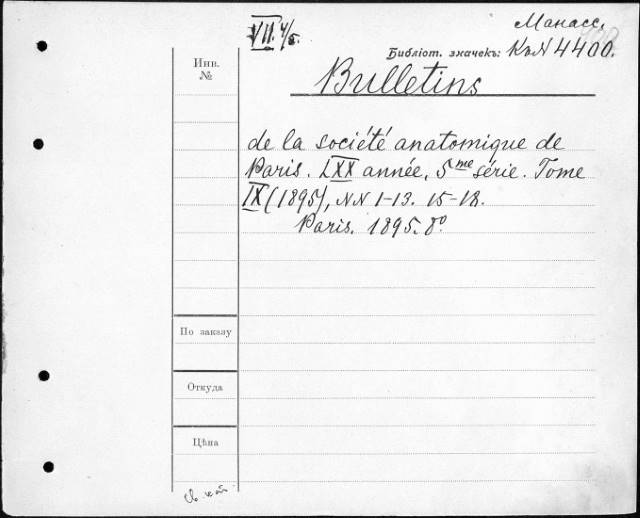 VII. 4/5.
Манасс.
Библіот. значекъ: К.N 4400.
Инв.
№
Bulletins
de la société anatomique de
Paris. LXX année, 5me série. Tome
IX (1895), NN 1-13. 15-18.
Paris. 1895. 8º
По заказу
Откуда
Цѣна